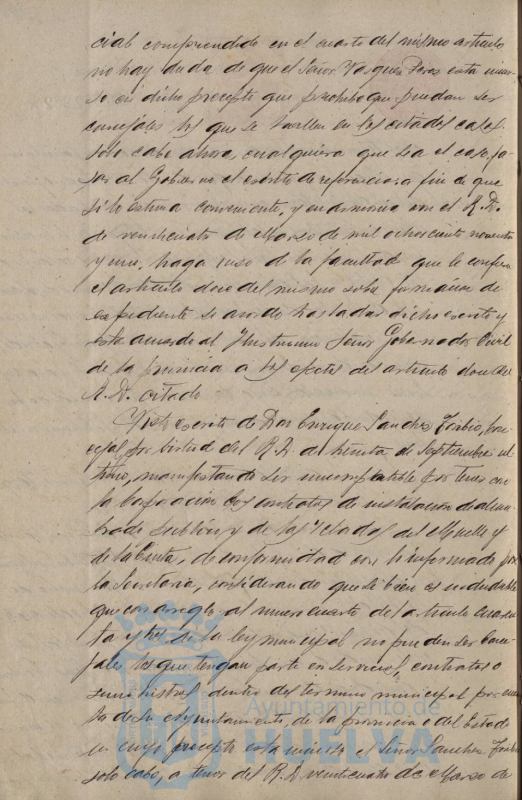 cial comprendido en el cuarto del mismo articulo
no hay duda de que el Señor Vazquez Perez está incur-
so en dicho precepto que prohibe que puedan ser
concejales los que se hallen en los citados casos.
solo cabe ahora, cualquiera que sea el caso, pa-
sar al Gobierno el escrito de referencia, a fin de que
si lo estima conveniente, y en armonia con el R. D.
de veinticuatro de Marzo de mil ochociento noventa
y uno, haga uso de la facultad que le confiere
el articulo doce del mismo sobre formacion de
expediente se acordó trasladar dicho escrito y
este acuerdo al Ilustrisimo Señor Gobernador Civil
de la provincia a los efectos del articulo doce del
R. D. citado
Visto escrito de Don Enrique Sanchez Toribio, con-
cejal por virtud del R. D. de treinta de Septiembre ul-
timo, manifestando ser incompatible por tener con
la Corporación los contratos de instalacion de alum-
brado publico y de los del Muelle y
de la Cinta, de conformidad con lo informado por
la Secretaria, considerando que si bien es indudable
que con arreglo al numero cuarto del articulo cuaren-
ta y tres de la ley municipal no pueden ser Conce-
jales los que tengan parte en servicios, contratos o
suministros dentro del termino municipal por cuen-
ta de su Ayuntamiento, de la provincia o del Estado
en cuyo precepto está incurso el Señor Sanchez Toribio
solo cabe, a tenor del R. D. veinticuatro de Marzo de
Ayuntamiento de
HUELVA